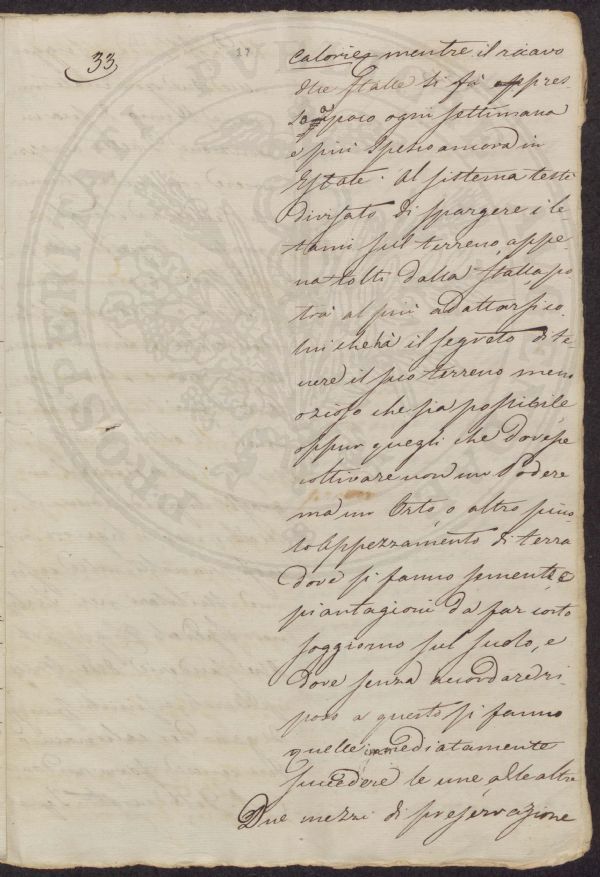 33
27
calorie, mentre il ricavo
dlle Stalle si fà appres
so a poco ogni settimana
e più spesso ancora in
Estate. Al sistema testè
divisato di spargere i le
tami sul terreno, appe
na tolti dalla stalla, po
trà al più adattarsi co
lui che hà il segreto di te
nere il suo terreno meno
ozioso che sia possibile,
oppur quegli che dovesse
coltivare non un Podere
ma un Orto, o altro picco
lo Appezzamento di terra
dove si fanno sementi e
piantagioni da far corto
soggiorno sul suolo, e
dove senza accordare ri
poso a questo si fanno
quelle immediatamente
succedere le une alle altre
Due mezzi di preservazione
PROSPERITATI